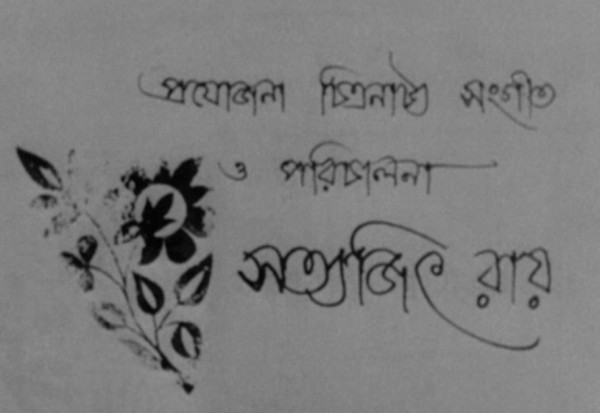 প্রযোজনা চিত্রনাট্য সংগীত
ও পরিচালনা
সত্যজিৎ রায়